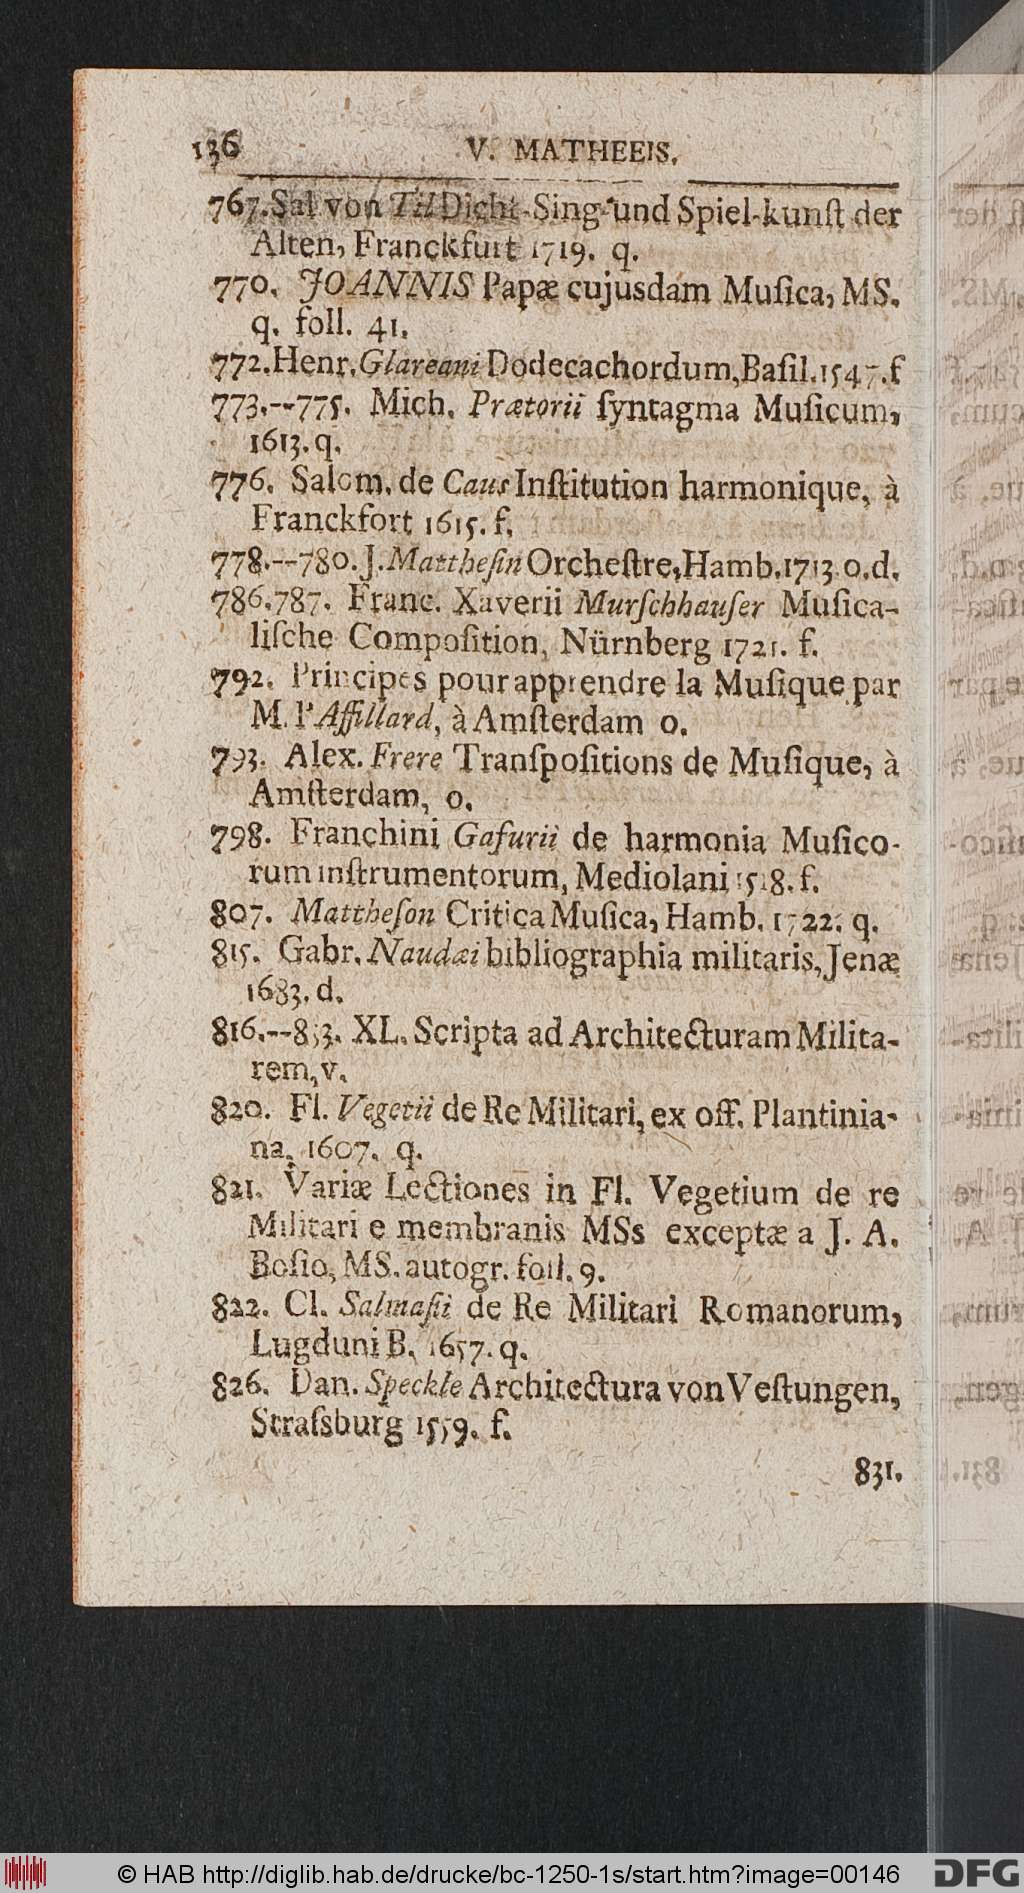 136 V. MATHEEIS.
767. Sal von Til Dicht-Sing-und Spiel-kunſt der
Alten, Franckfurt 1719. q.
770. JOANNIS Papæ cujusdam Muſica, MS.
q. foll. 41.
772. Henr. Glareani Dodecachordum, Baſil. 1547. f
773.--775. Mich. Prætorii ſyntagma Muſicum,
1613. q.
776. Salom. de Caus Inſtitution harmonique, à
Franckfort 1615. f.
778.--780. J. Mattheſin Orcheſtre, Hamb. 1713. o. d.
786. 787. Franc. Xaverii Murſchhauſer Muſica-
liſche Compoſition, Nürnberg 1721. f.
792. Principes pour apprendre la Muſique par
M. l'Affillard, à Amſterdam o.
793. Alex. Frere Tranſpoſitions de Muſique, à
Amſterdam, o.
798. Franchini Gafurii de harmonia Muſico-
rum inſtrumentorum, Mediolani 1518. f.
807. Mattheſon Critica Muſica, Hamb. 1722. q.
815. Gabr. Naudæi bibliographia militaris, Jenæ
1683. d.
816.--853. XL. Scripta ad Architecturam Milita-
rem, v.
820. Fl. Vegetii de Re Militari, ex off. Plantinia-
na, 1607. q.
821. Variæ Lectiones in Fl. Vegetium de re
Militari e membranis MSs exceptæ a J. A.
Boſio, MS. autogr. foll. 9.
822. Cl. Salmaſii de Re Militari Romanorum,
Lugduni B. 1657. q.
826. Dan. Speckle Architectura von Veſtungen,
Straſsburg 1559. f.
831.
© HAB http://diglib.hab.de/drucke/bc-1250-1s/start.htm?image=00146
DFG